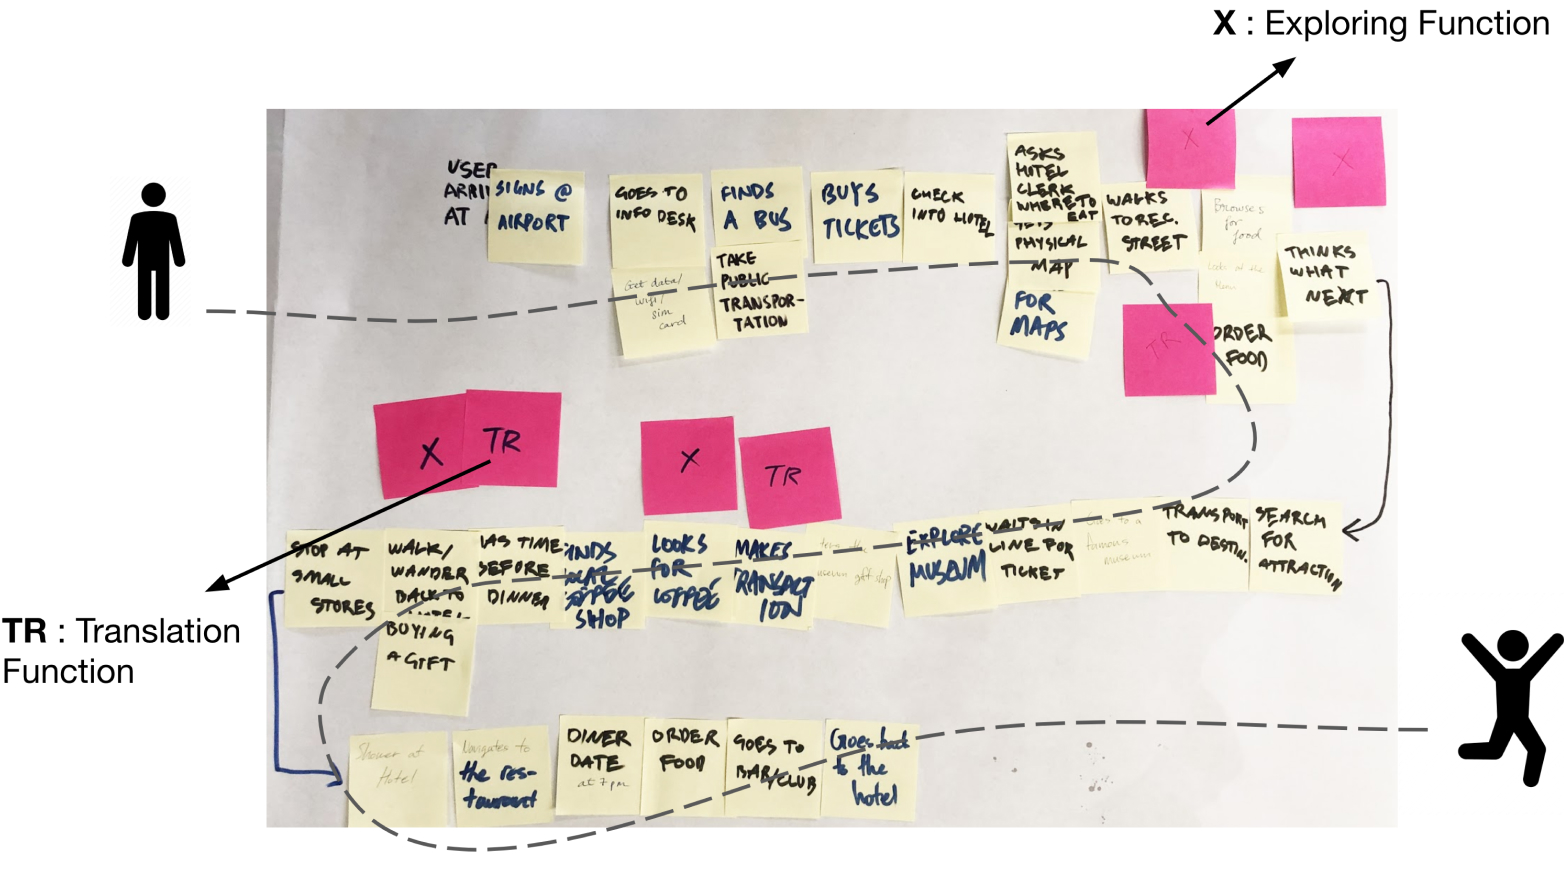 X : Exploring Function
X
X
USER
ARRI
AT
SIGNS @
AIRPORT
GOES TO
INFO DESK
Get data/
wifi/
sim
card
FINDS
A BUS
TAKE
PUBLIC
TRANSPOR-
TATION
BUYS
TICKETS
CHECK
INTO HOTEL
ASKS
HOTEL
CLERK
WHERE TO
EAT
PHYSICAL
MAP
FOR
MAPS
WALKS
TO REC.
STREET
Browses
for
food
Looks at the
TR
ORDER
FOOD
THINKS
WHAT
NEXT
X
TR
X
TR
STOP AT
SMALL
STORES
WALK/
WANDER
BACK TO
BUYING
A GIFT
HAS TIME
BEFORE
DINNER
SHOP
LOOKS
FOR
COFFEE
MAKES
TRANSACT
ION
EXPLORE
MUSEUM
WAITS IN
LINE FOR
TICKET
Goes to a
famous
museum
TRANSPORT
TO DESTIN.
SEARCH
FOR
ATTRACTION
TR : Translation
Function
Shower at
Hotel
Navigates to
the res-
taurant
DINER
DATE
at 7pm
ORDER
FOOD
GOES TO
BAR/CLUB
Goes back
to the
hotel